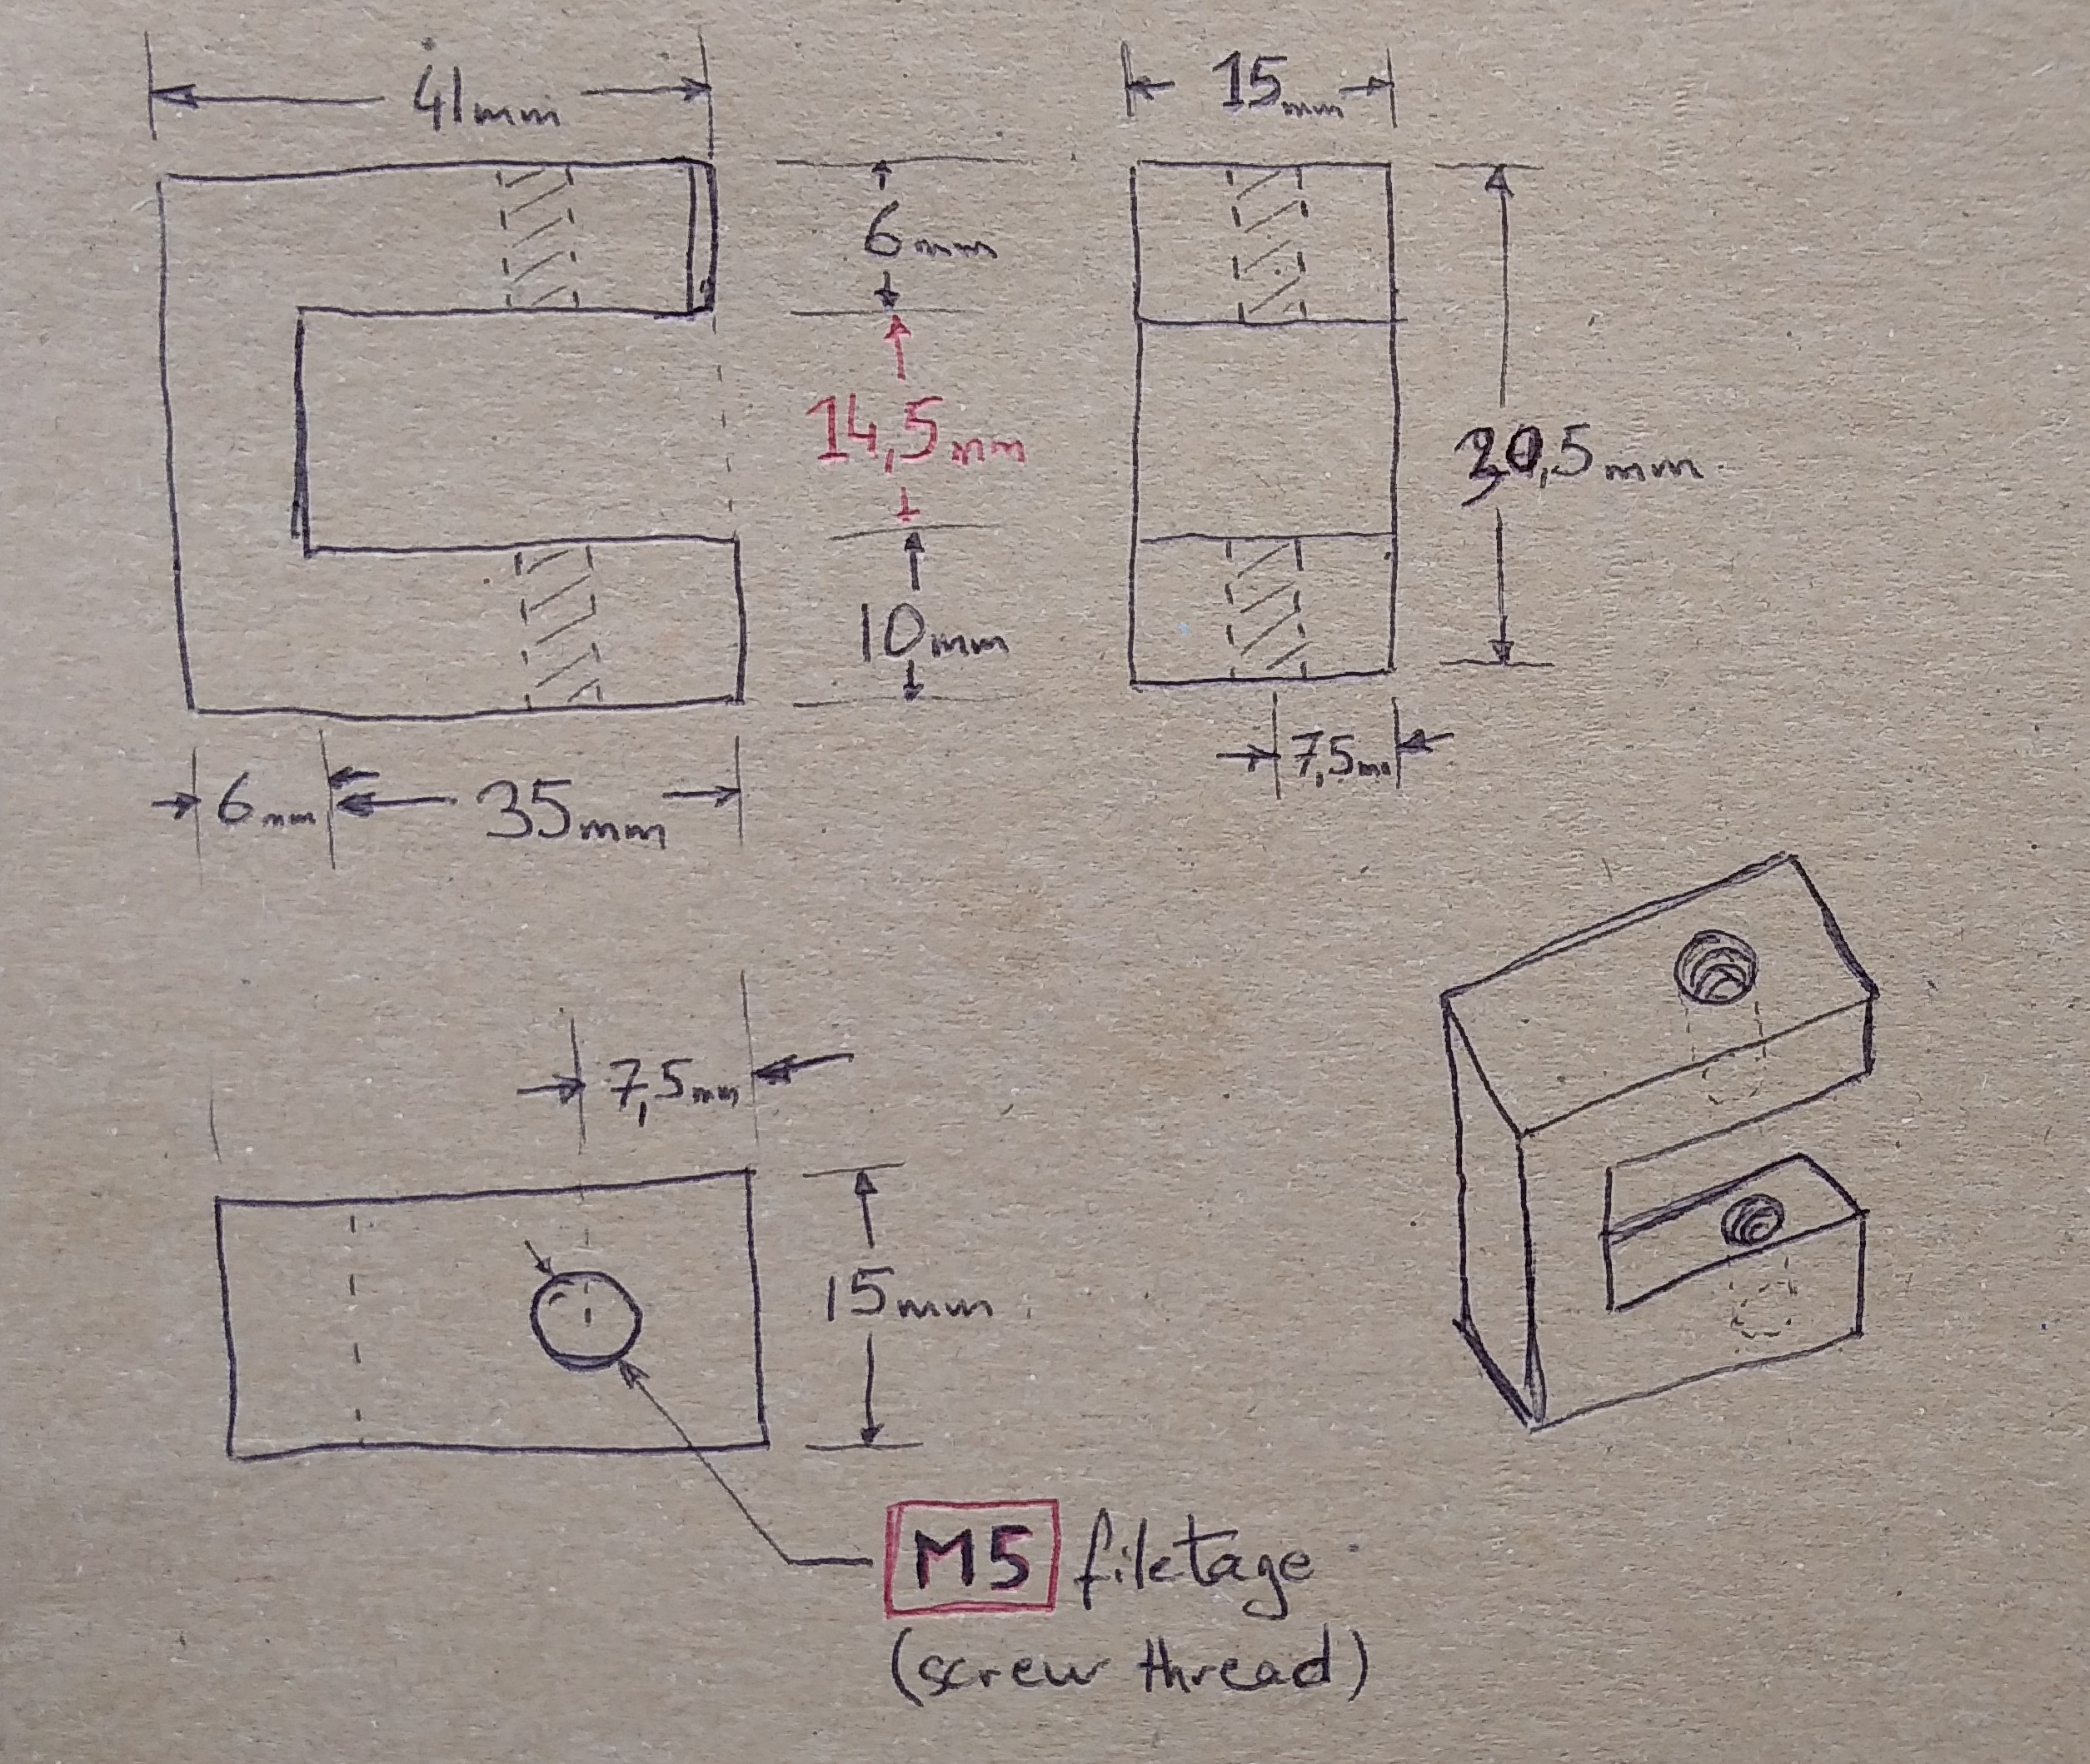 41mm
15mm
6mm
14,5mm
30,5mm
10mm
7,5mm
6mm
35mm
7,5mm
15mm
M5 filetage
(screw thread)